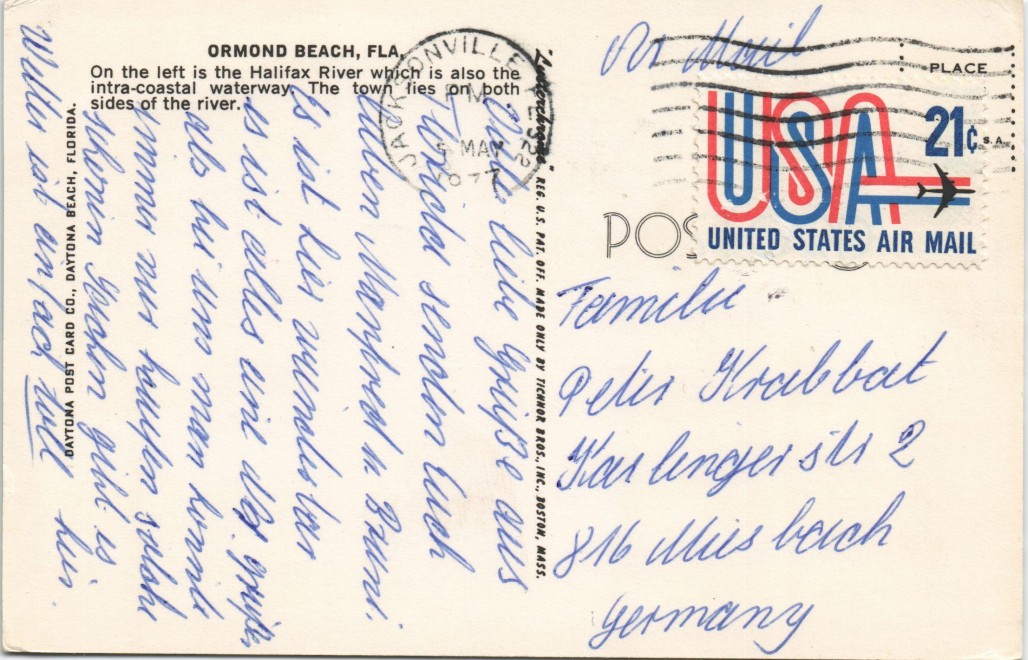 ORMOND BEACH, FLA.
On the left is the Halifax River which is also the
intra-coastal waterway. The town lies on both
sides of the river.
DAYTONA POST CARD CO., DAYTONA BEACH, FLORIDA.
"Lusterchrome" REG. U.S. PAT. OFF. MADE ONLY BY TICHNOR BROS., INC., BOSTON, MASS.
JACKSONVILLE FL 322
PM
5 MAY
1977
PLACE
S.A.
USA 21¢
UNITED STATES AIR MAIL
POS
Air Mail
Familie
Peter Krabbat
Karlingerstr 2
816 Miesbach
Germany
liebe Grüße aus
Florida senden Euch
Manfred u
Es ist hier wunderbar
es ist alles viel
als bei uns man
immer nur
gibt es
Wetter ist einfach toll hier.